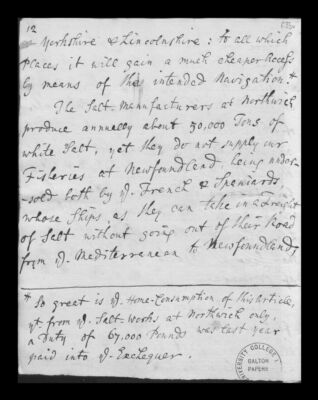 12
Yorkshire & Lincolnshire: to all which
places it will gain a much cheaper access
by means of this intended Navigation.*
The Salt-Manufacturers at Northwich
produce annually about 50,000 Tons of
white Salt, yet they do not supply our
Fisheries at Newfoundland, being under-
-sold both by ye. French & Spaniards
whose Ships, as they can take in a Freight
of Salt without going out of their Road
from ye. Mediterranean to Newfoundland,
* So great is ye. Home-Consumption of this Article,
yt. from ye. Salt-works at Northwich only,
a Duty of 67,000 Pounds was last year
paid into ye. Exchequer.
UNIVERSITY COLLEGE
GALTON
PAPERS